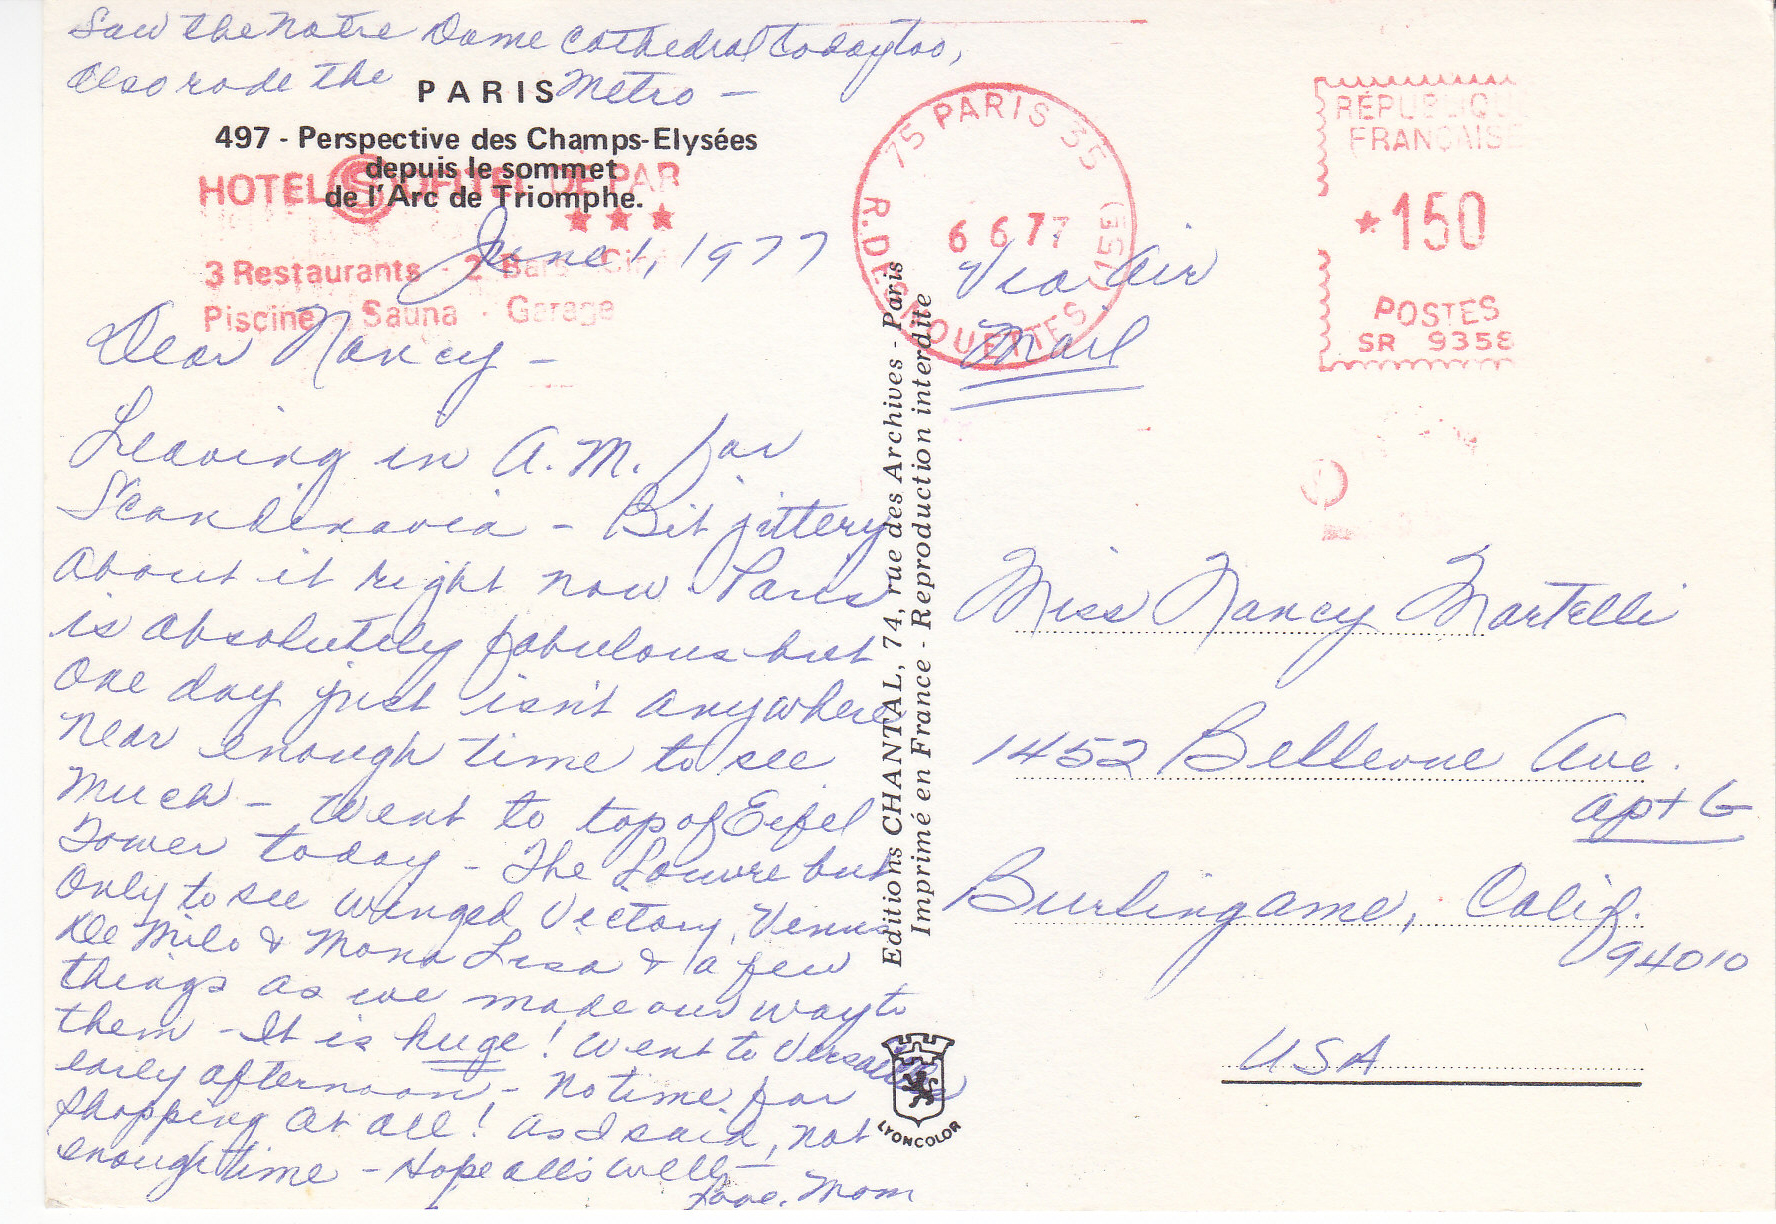 Saw the Notre Dame Cathedral today too,
Also rode the Metro —
PARIS
497 - Perspective des Champs-Elysées
depuis le sommet
de l'Arc de Triomphe.
HOTEL SOFITEL DE PAR
3 Restaurants - 2 Bars - Ciné
Piscine - Sauna - Garage
June 1, 1977
Dear Nancy —
Leaving in A.M. for
Scandinavia - Bit jittery
about it right now - Paris
is absolutely fabulous but
one day just isn't anywhere
near enough time to see
much - went to top of Eifel
Tower today - The Louvre but
only to see winged Victory, Venus
De Milo & Mona Lisa & a few
things as we made our way to
them - It is huge! Went to Versailles
early afternoon - no time for
shopping at all! As I said, not
enough time - Hope all's well -
Love, Mom
Editions CHANTAL, 74, rue des Archives - Paris
Imprimé en France - Reproduction interdite
LYONCOLOR
75 PARIS 35
R. DES (15E)
6 6 77
RÉPUBLIQU
FRANÇAISE
*150
POSTES
SR 9358
Via Air
Mail
Miss Nancy Martelli
1452 Bellevue Ave.
apt G
Burlingame, Calif.
94010
USA